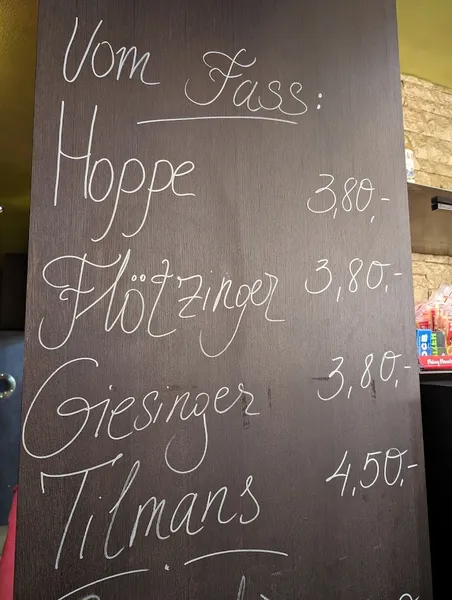 Vom Fass:
Hoppe 3,80,-
Flötzinger 3,80,-
Giesinger 3,80,-
Tilmans 4,50,-